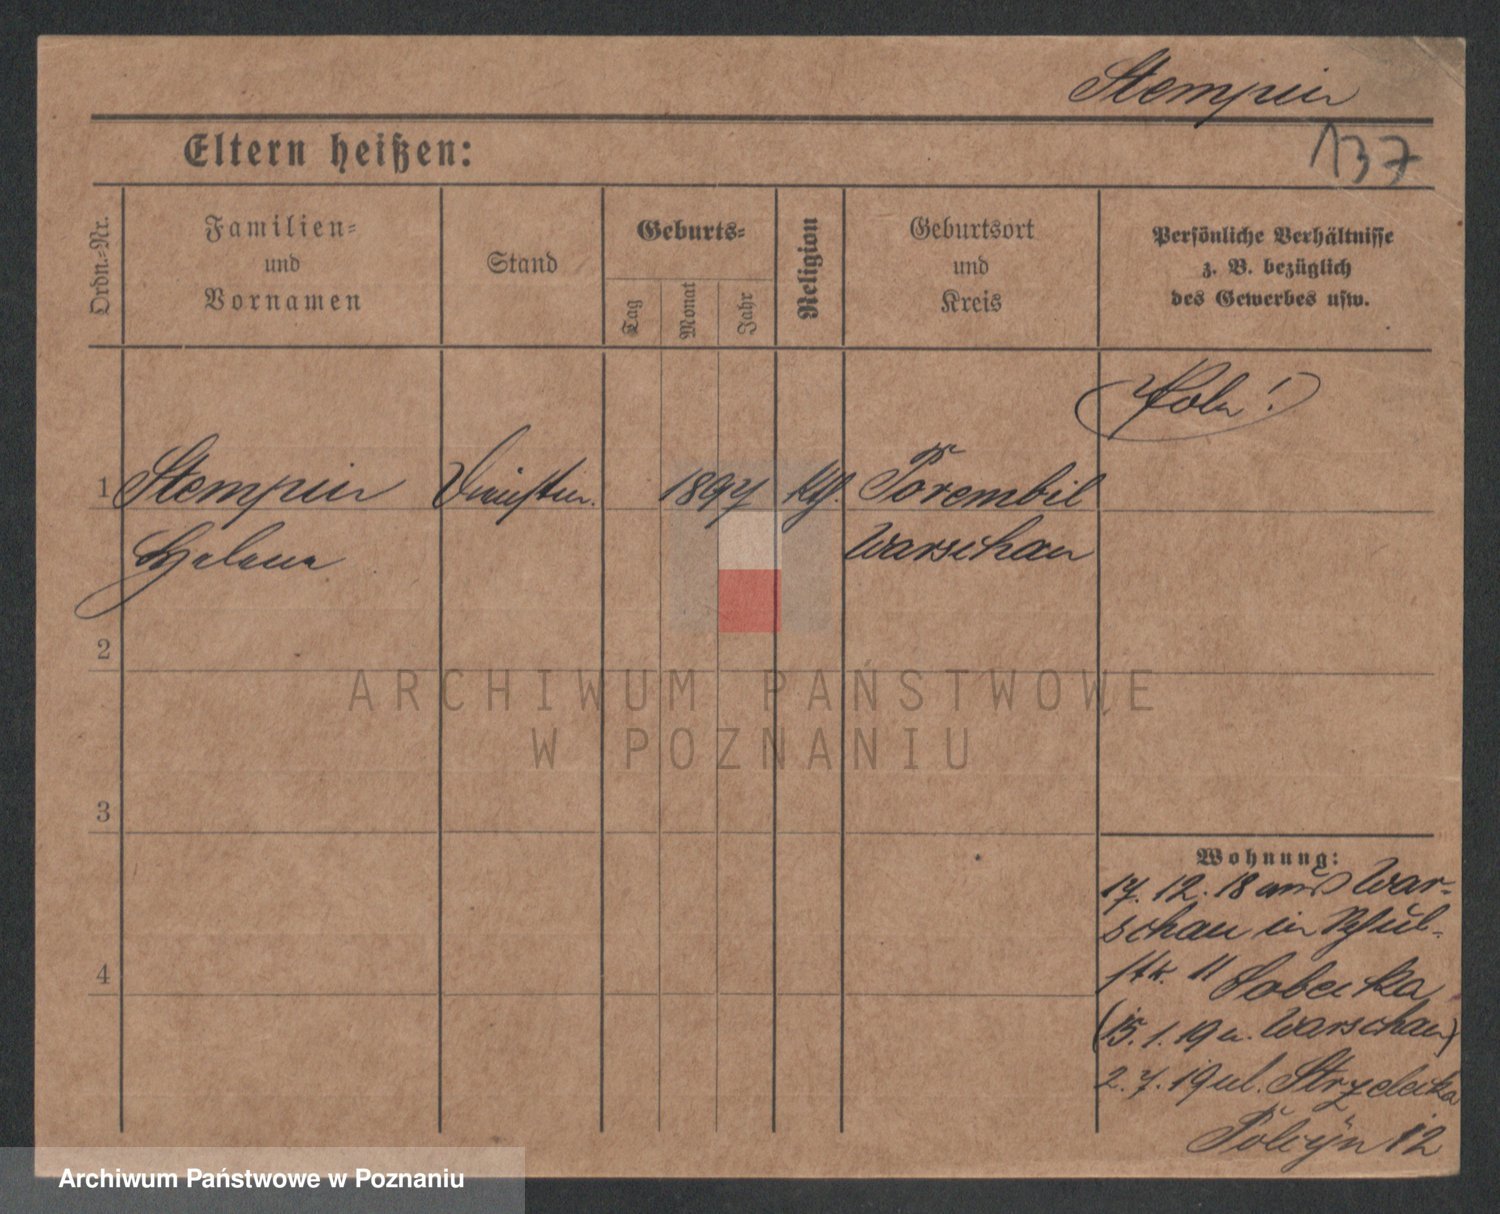 Stempin
137
Eltern heißen:
Ordn.-Nr.
Familien-
und
Vornamen
Stand
Geburts-
Tag
Monat
Jahr
Religion
Geburtsort
und
Kreis
Persönliche Verhältnisse
z. B. bezüglich
des Gewerbes usw.
Pole!
1 Stempin 1897 kath. Porembil
Helena Warschau
2
3
4
ARCHIWUM PAŃSTWOWE
W POZNANIU
Wohnung:
17. 12. 18 aus War-
schau in
11
(15. 1. 19 n. Warschau)
2. 7. 19 ul. Strzelecka
12
Archiwum Państwowe w Poznaniu